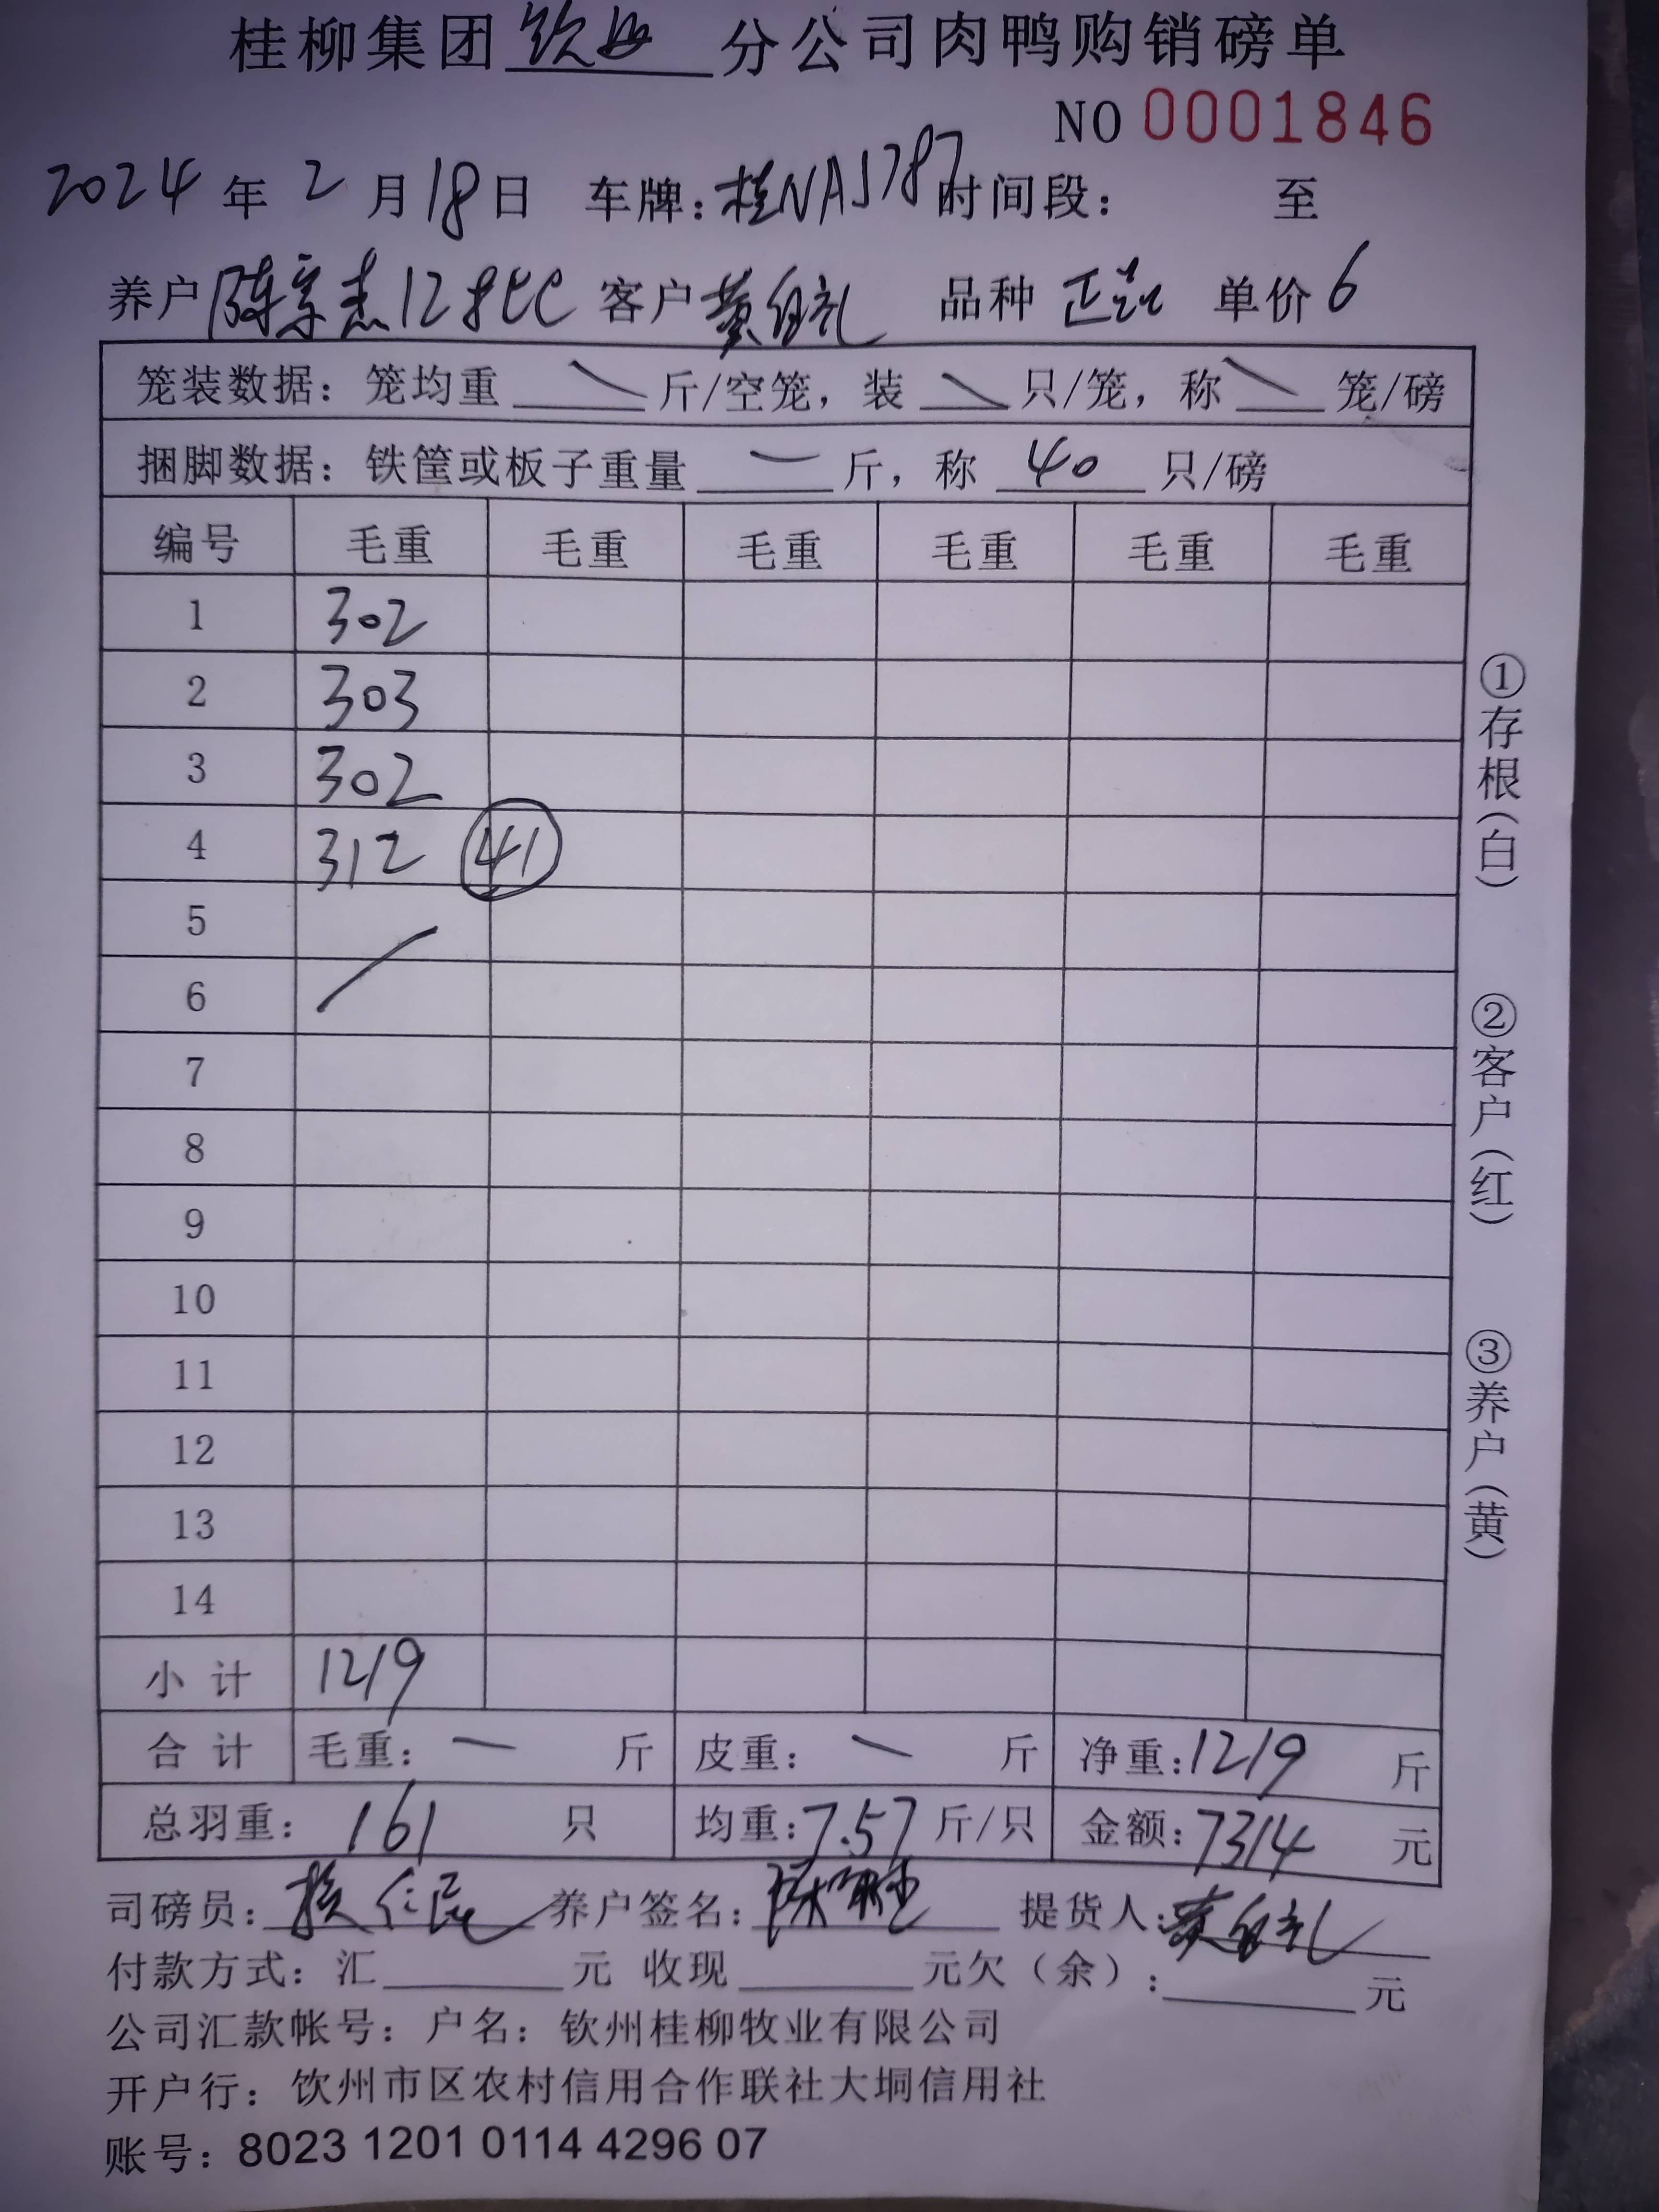 桂柳集团钦州分公司肉鸭购销磅单
NO 0001846
2024年2月18日 车牌:桂NA5787时间段: 至
养户 陈 128 客户 黄 品种 正 单价6
笼装数据: 笼均重 斤/空笼, 装 只/笼, 称 笼/磅
捆脚数据: 铁筐或板子重量 — 斤, 称 40 只/磅
编号 毛重 毛重 毛重 毛重 毛重 毛重
1 302
2 303
3 302
4 312 41
5
6
7
8
9
10
11
12
13
14
小计 1219
合计 毛重: — 斤 皮重: — 斤 净重:1219 斤
总羽重: 161 只 均重:7.57斤/只 金额:7314 元
司磅员: 养户签名: 陈 提货人: 黄
付款方式: 汇 元 收现 元欠(余): 元
公司汇款帐号: 户名: 钦州桂柳牧业有限公司
开户行: 钦州市区农村信用合作联社大垌信用社
账号: 8023 1201 0114 4296 07
①存根(白)
②客户(红)
③养户(黄)